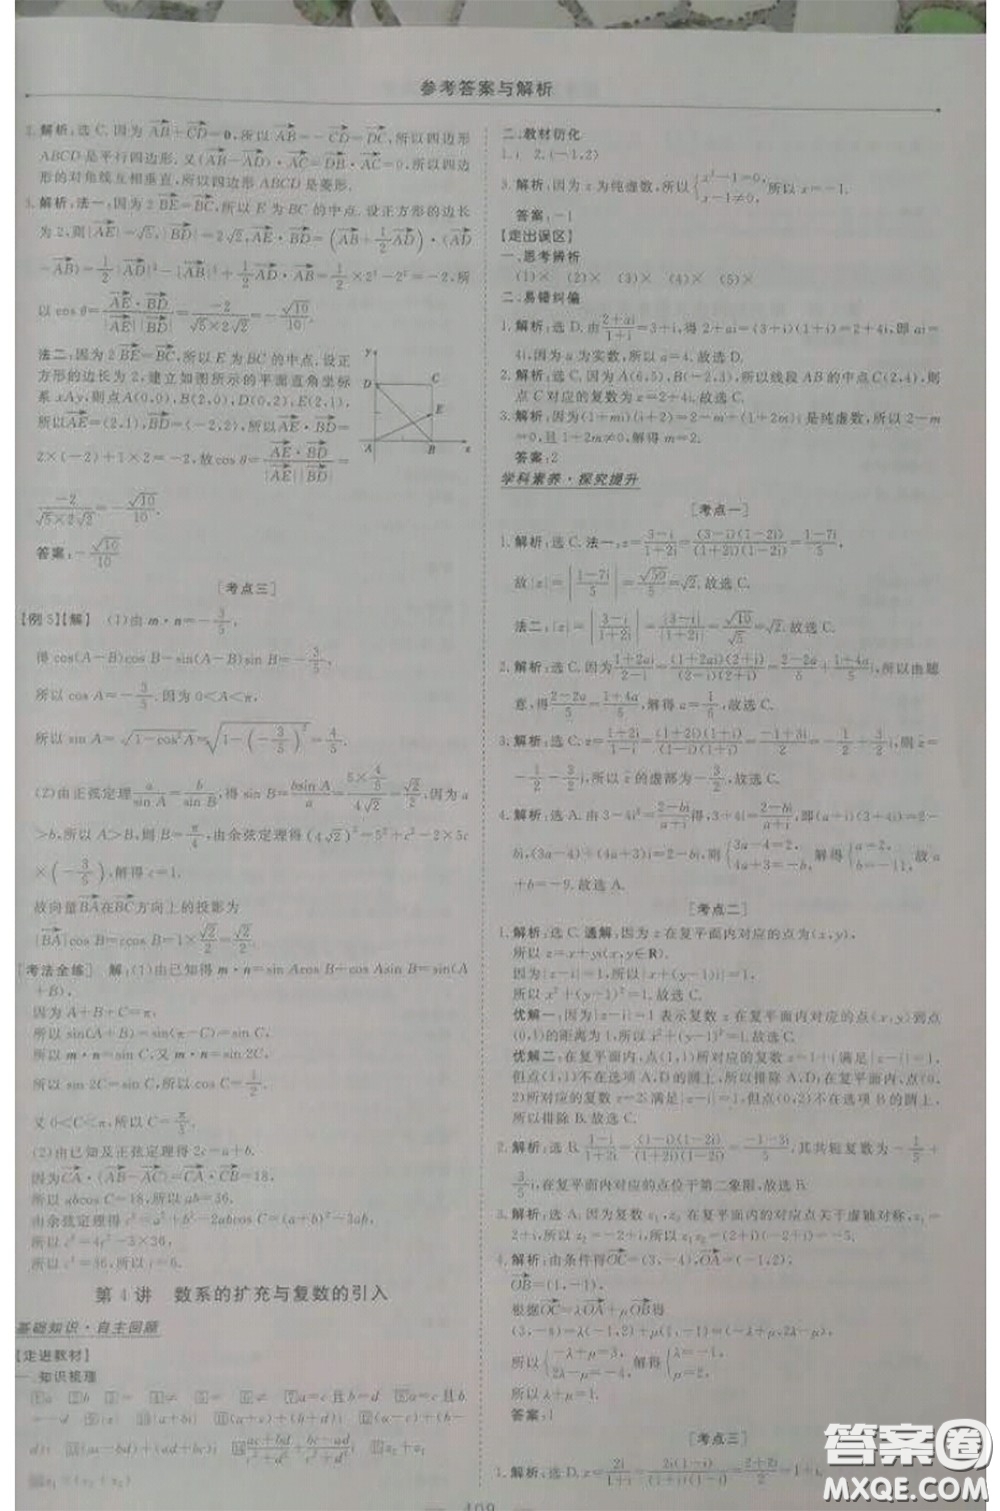 参考答案与解析
2. 解析:选 C. 因为 AB+CD=0,所以 AB=-CD=DC,所以四边形
ABCD是平行四边形.又(AB-AD)·AC=DB·AC=0,所以四边
形的对角线互相垂直,所以四边形 ABCD 是菱形.
解析:法一:因为 2 BE=BC,所以 E 为 BC 的中点.设正方形的边长
为2,则|AE|=√5,|BD|=2√2,AE·BD=(AB+1/2AD)·(AD
-AB)=1/2|AD|²-|AB|²+1/2AD·AB=1/2×2²-2²=-2,所
以 cos θ=AE·BD/|AE||BD|=-2/(√5×2√2)=-√10/10.
法二:因为 2 BE=BC,所以 E 为 BC 的中点.设正
方形的边长为 2,建立如图所示的平面直角坐标
系 xAy,则点A(0,0),B(2,0),D(0,2),E(2,1),
所以AE=(2,1),BD=(-2,2),所以AE·BD=
2×(-2)+1×2=-2,故cos θ=AE·BD/|AE||BD|=
-2/(√5×2√2)=-√10/10.
y D C E A B x
答案:-√10/10
[考点三]
【例 5】【解】 (1)由 m·n=-3/5,
得 cos(A-B)cos B-sin(A-B)sin B=-3/5,
所以 cos A=-3/5.因为 0<A<π,
所以 sin A=√(1-cos²A)=√(1-(-3/5)²)=4/5.
(2)由正弦定理a/sin A=b/sin B,得 sin B=bsin A/a=(5×4/5)/(4√2)=√2/2,因为 a
>b,所以 A>B,则 B=π/4,由余弦定理得(4√2)²=5²+c²-2×5c
×(-3/5),解得 c=1.
故向量BA在BC方向上的投影为
|BA|cos B=ccos B=1×√2/2=√2/2.
[考法全练] 解:(1)由已知得 m·n=sin Acos B+cos Asin B=sin(A
+B),
因为 A+B+C=π,
所以 sin(A+B)=sin(π-C)=sin C,
所以 m·n=sin C,又 m·n=sin 2C,
所以 sin 2C=sin C,所以 cos C=1/2.
又 0<C<π,所以 C=π/3.
(2)由已知及正弦定理得 2c=a+b.
因为CA·(AB-AC)=CA·CB=18,
所以 abcos C=18,所以 ab=36.
由余弦定理得 c²=a²+b²-2abcos C=(a+b)²-3ab,
所以 c²=4c²-3×36,
所以 c²=36,所以 c=6.
第 4 讲 数系的扩充与复数的引入
基础知识·自主回顾
[走进教材]
一、知识梳理
二、教材衍化
1. i 2. (-1,2)
3. 解析:因为 z 为纯虚数,所以{x²-1=0, x-1≠0, 所以 x=-1.
答案:-1
[走出误区]
一、思考辨析
(1)× (2)× (3)× (4)× (5)×
二、易错纠偏
1. 解析:选 D. 由(2+ai)/(1+i)=3+i,得 2+ai=(3+i)(1+i)=2+4i,即 ai=
4i,因为 a 为实数,所以 a=4. 故选 D.
2. 解析:选 C. 因为 A(6,5),B(-2,3),所以线段 AB 的中点 C(2,4),则
点 C 对应的复数为 z=2+4i. 故选 C.
3. 解析:因为(1+mi)(i+2)=2-m+(1+2m)i 是纯虚数,所以 2-m
=0,且 1+2m≠0,解得 m=2.
答案:2
学科素养·探究提升
[考点一]
1. 解析:选 C. 法一:z=(3-i)/(1+2i)=(3-i)(1-2i)/(1+2i)(1-2i)=(1-7i)/5,
故|z|=|(1-7i)/5|=√50/5=√2. 故选 C.
法二:|z|=|(3-i)/(1+2i)|=|3-i|/|1+2i|=√10/√5=√2. 故选 C.
2. 解析:选 C. 因为(1+2ai)/(2-i)=(1+2ai)(2+i)/(2-i)(2+i)=(2-2a)/5+(1+4a)/5i,所以由题
意,得(2-2a)/5=(1+4a)/5,解得 a=1/6,故选 C.
3. 解析:选 C. z=(1+2i)/(1-i)=(1+2i)(1+i)/(1-i)(1+i)=(-1+3i)/2=-1/2+3/2i,则z̄=
-1/2-3/2i,所以 z̄ 的虚部为-3/2,故选 C.
4. 解析:选 A. 由 3-4i³=(2-bi)/(a+i),得 3+4i=(2-bi)/(a+i),即(a+i)(3+4i)=2-
bi,(3a-4)+(4a+3)i=2-bi,则{3a-4=2, 4a+3=-b, 解得{a=2, b=-11, 故 a
+b=-9. 故选 A.
[考点二]
1. 解析:选 C. 通解:因为 z 在复平面内对应的点为(x,y),
所以 z=x+yi(x,y∈R).
因为|z-i|=1,所以|x+(y-1)i|=1,
所以 x²+(y-1)²=1. 故选 C.
优解一:因为|z-i|=1 表示复数 z 在复平面内对应的点(x,y)到点
(0,1)的距离为 1,所以 x²+(y-1)²=1. 故选 C.
优解二:在复平面内,点(1,1)所对应的复数 z=1+i 满足|z-i|=1,
但点(1,1)不在选项 A,D 的圆上,所以排除 A,D;在复平面内,点(0,
2)所对应的复数 z=2i 满足|z-i|=1,但点(0,2)不在选项 B 的圆上,
所以排除 B. 故选 C.
2. 解析:选 B. (1-i)/(1+2i)=(1-i)(1-2i)/(1+2i)(1-2i)=(-1-3i)/5,其共轭复数为-1/5+
3/5i,在复平面内对应的点位于第二象限,故选 B.
3. 解析:选 A. 因为复数 z₁,z₂ 在复平面内的对应点关于虚轴对称,z₁=
2+i,所以 z₂=-2+i,
4. 解析:由条件得OC=(3,-4),OA=(-1,2),
OB=(1,-1),
根据OC=λOA+μOB得
(3,-4)=λ(-1,2)+μ(1,-1)=(-λ+μ,2λ-μ),
所以{-λ+μ=3, 2λ-μ=-4, 解得{λ=-1, μ=2,
答案:1
[考点三]
答案圈
MXQE.COM